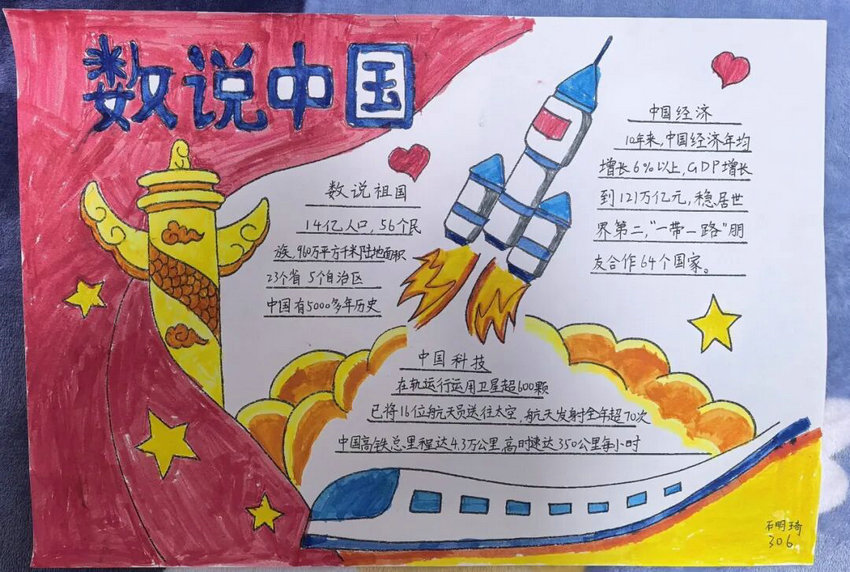 数说中国
数说祖国
14亿人口，56个民
族，960万平方千米陆地面积
23个省 5个自治区
中国有5000多年历史
中国经济
10年来，中国经济年均
增长6%以上，GDP增长
到121万亿元，稳居世
界第二，“一带一路”朋
友合作64个国家。
中国科技
在轨运行运用卫星超600颗
已将16位航天员送往太空，航天发射全年超70次
中国高铁总里程达4.3万公里，高时速达350公里每小时
石明琦
306